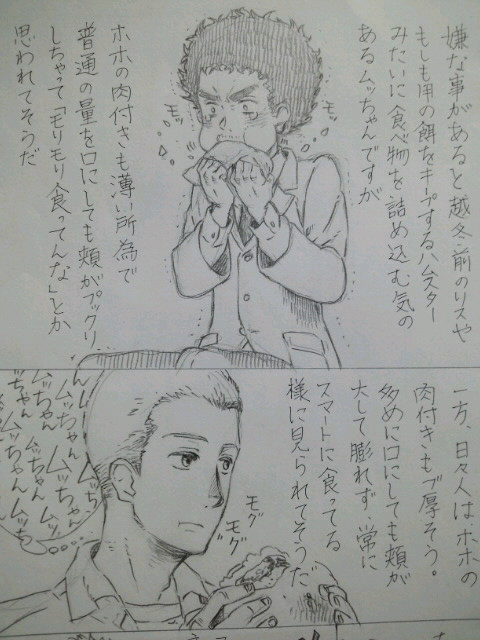 嫌な事があると越冬前のリスや
もしも用の餌をキープするハムスター
みたいに食べ物を詰め込む気の
あるムッちゃんですが
モッ
モッ
ホホの肉付きも薄い所為で
普通の量を口にしても頬がプックリ
しちゃって「モリモリ食ってんな」とか
思われてそうだ
一方、日々人は、ホホの
肉付きもブ厚そう。
多めに口にしても頬が
大して膨れず、常に
スマートに食ってる
様に見られてそうだ
モグ
モグ
んムッちゃん
ムッちゃんムッちゃん
ムッちゃんムッちゃん
ムッちゃんムッ
ちゃん